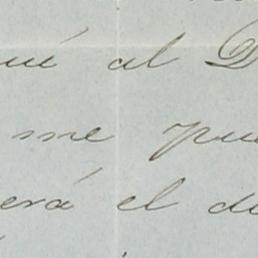 ué al D
me pue
erá el de